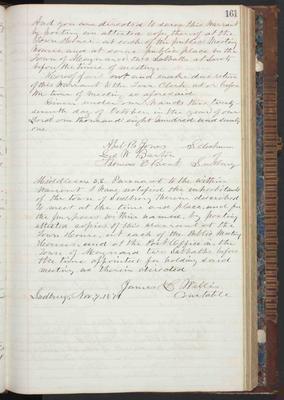 161
And you are directed to serve this Warrant
by posting an attested copy thereof at the
Town House, at each of the public Meeting
Houses and at some public place in the
Town of Maynard two Sabbaths at least
before the time of meeting.
Hereof fail not and make due return
of this Warrant to the Town Clerk at or before
the time of meeting as aforesaid
Given under our hands this twenty
seventh day of October in the year of our
Lord one thousand eight hundred and seventy
one.
Selectmen
of
Sudbury
Middlesex S.S. Pursuant to the within
Warrant I have notified the inhabitants
of the town of Sudbury therein described
to meet at the time and place and for
the purposes within named, by posting
attested copies of this warrant at the
Town House, at each of the Public Meeting
Houses and at the Post Office in the
Town of Maynard two Sabbaths before
the time appointed for holding said
meeting as therein directed
James
Constable
Sudbury, Nov. 7, 1871